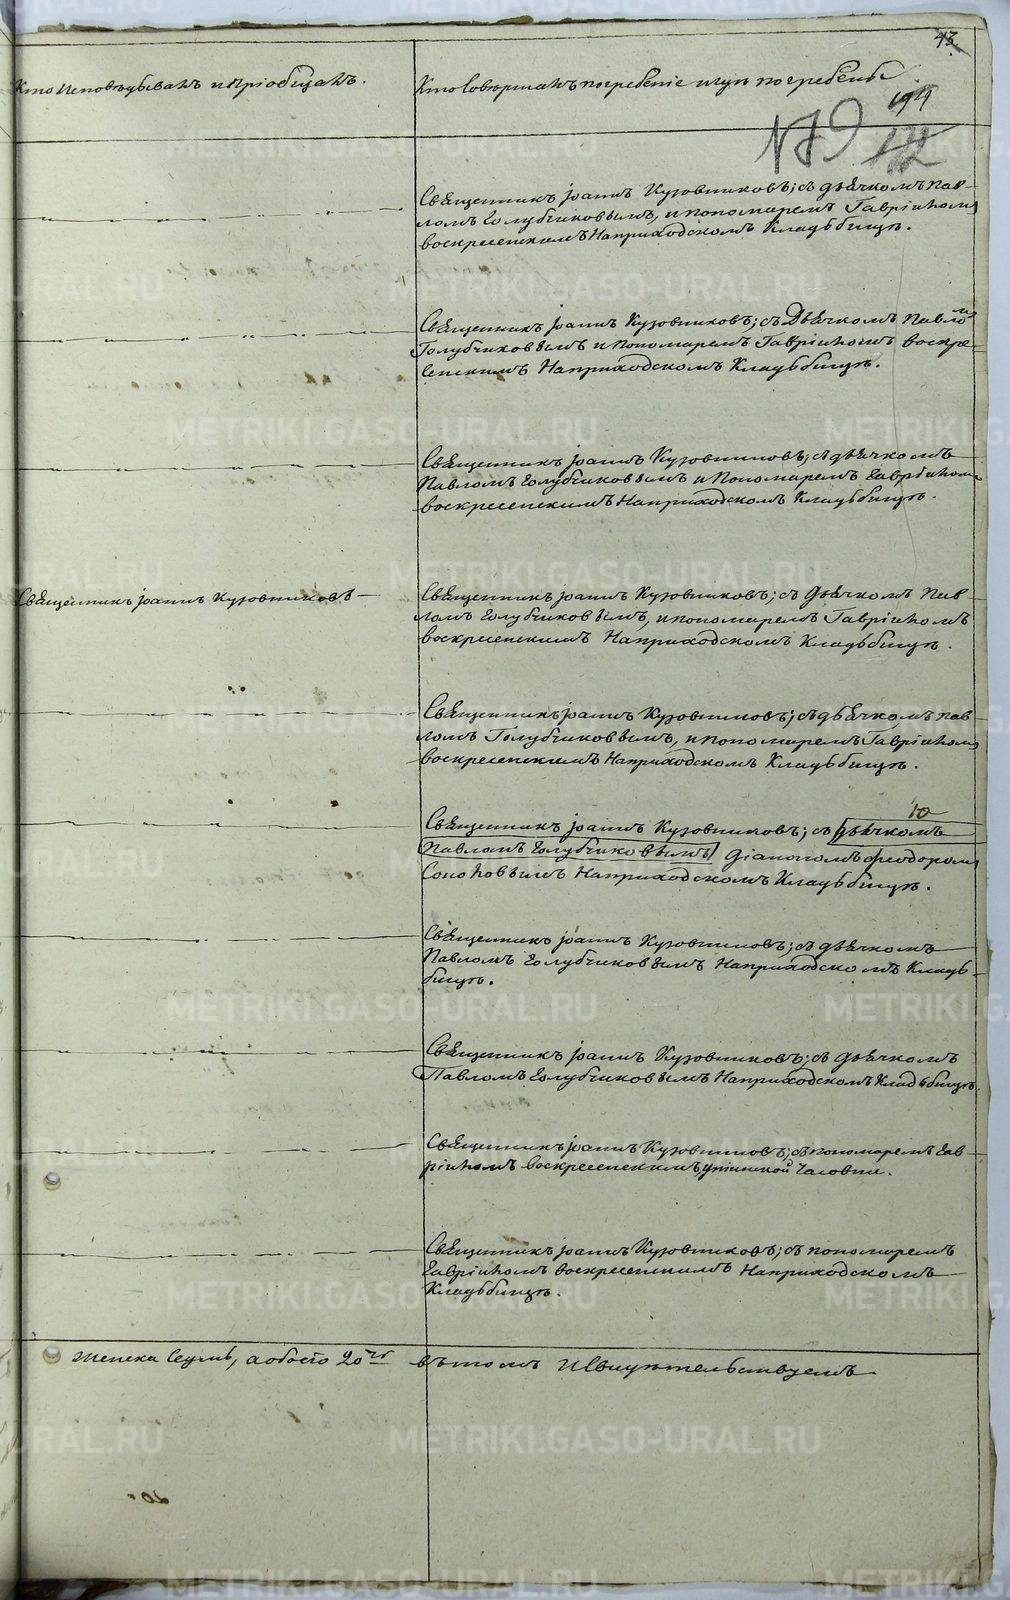 43.
Кто Исповѣдывалъ и пріобщалъ.
Кто Совершалъ погребеніе и гдѣ погребены.
194
Священникъ Іоаннъ Кузовниковъ; съ дьячкомъ Пав-
ломъ Голубчиковымъ, и пономаремъ Гавріиломъ
воскресенскимъ На приходскомъ Кладьбищѣ.
Священникъ Іоаннъ Кузовниковъ; съ Дьячкомъ Павломъ
Голубчиковымъ и пономаремъ Гавріиломъ воскре-
сенскимъ На приходскомъ Кладьбищѣ.
Священникъ Іоаннъ Кузовниковъ; съ дьячкомъ
Павломъ Голубчиковымъ и Пономаремъ Гавріиломъ
воскресенскимъ На приходскомъ Кладьбищѣ.
Священникъ Іоаннъ Кузовниковъ
Священникъ Іоаннъ Кузовниковъ; съ Дьячкомъ Пав-
ломъ Голубчиковымъ, и пономаремъ Гавріиломъ
воскресенскимъ На приходскомъ Кладьбищѣ.
Священникъ Іоаннъ Кузовниковъ; съ дьячкомъ Пав-
ломъ Голубчиковымъ, и пономаремъ Гавріиломъ
воскресенскимъ На приходскомъ Кладьбищѣ.
Священникъ Іоаннъ Кузовниковъ; съ дьячкомъ
Павломъ Голубчиковымъ діакономъ Феодоромъ
Соколовымъ На приходскомъ Кладьбищѣ.
Священникъ Іоаннъ Кузовниковъ; съ дьячкомъ
Павломъ Голубчиковымъ На приходскомъ Кладь-
бищѣ.
Священникъ Іоаннъ Кузовниковъ; съ дьячкомъ
Павломъ Голубчиковымъ На приходскомъ Кладьбищѣ.
Священникъ Іоаннъ Кузовниковъ; съ пономаремъ Гав-
ріиломъ воскресенскимъ часовни.
Священникъ Іоаннъ Кузовниковъ; съ пономаремъ
Гавріиломъ воскресенскимъ На приходскомъ
Кладьбищѣ.
женска Седмь, а обоего 20ть въ томъ И Свидѣтельствуемъ
METRIKI.GASO-URAL.RU